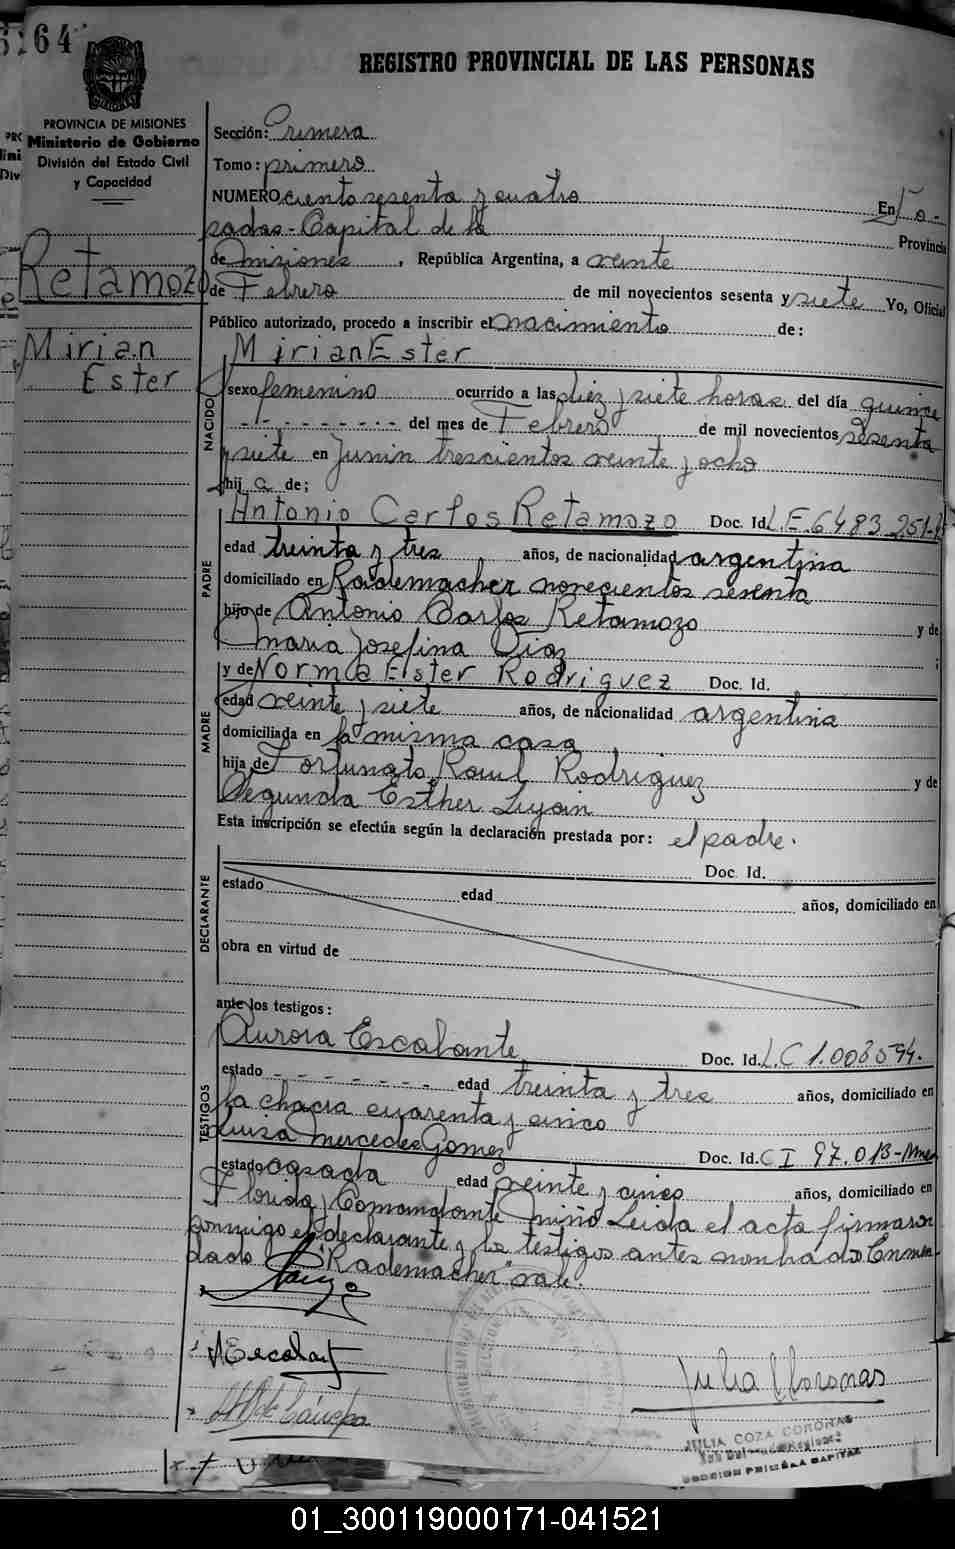 164
REGISTRO PROVINCIAL DE LAS PERSONAS
PROVINCIA DE MISIONES
Ministerio de Gobierno
División del Estado Civil
y Capacidad
Retamozo
Mirian
Ester
Sección: Primera
Tomo: primero
NUMERO ciento sesenta y cuatro En Po-
sadas - Capital de la Provincia
de Misiones, República Argentina, a veinte
de Febrero de mil novecientos sesenta y siete Yo, Oficial
Público autorizado, procedo a inscribir el nacimiento de:
Mirian Ester
NACIDO
sexo femenino ocurrido a las diez y siete horas del día quince
del mes de Febrero de mil novecientos sesenta
y siete en Junin trescientos veinte y ocho
hija de:
Antonio Carlos Retamozo Doc. Id. L.E. 6483251
PADRE
edad treinta y tres años, de nacionalidad argentina
domiciliado en Rademacher novecientos sesenta
hijo de Antonio Carlos Retamozo y de
Maria Josefina Diaz ;
y de Norma Ester Rodriguez Doc. Id.
MADRE
edad veinte y siete años, de nacionalidad argentina
domiciliada en la misma casa
hija de Fortunato Raul Rodriguez y de
Segunda Esther Lujan
Esta inscripción se efectúa según la declaración prestada por: el padre.
Doc. Id.
DECLARANTE
estado edad años, domiciliado en
obra en virtud de
ante los testigos:
Aurora Escalante Doc. Id. L.C 1.003594.
TESTIGOS
estado - - - - - - - edad treinta y tres años, domiciliado en
la chacra cuarenta y cinco
Luisa Mercedes Gomez Doc. Id. C I 97.013-Mnes
estado casada edad veinte y cinco años, domiciliado en
Florida y Comandante Miño Leida el acta firmaron
conmigo el declarante y los testigos antes nombrados Enmen
dado "Rademacher" vale.
AEscalant
Julia C Coronas
JULIA COZA CORONAS
SECCION PRIMERA CAPITAL
01_300119000171-041521